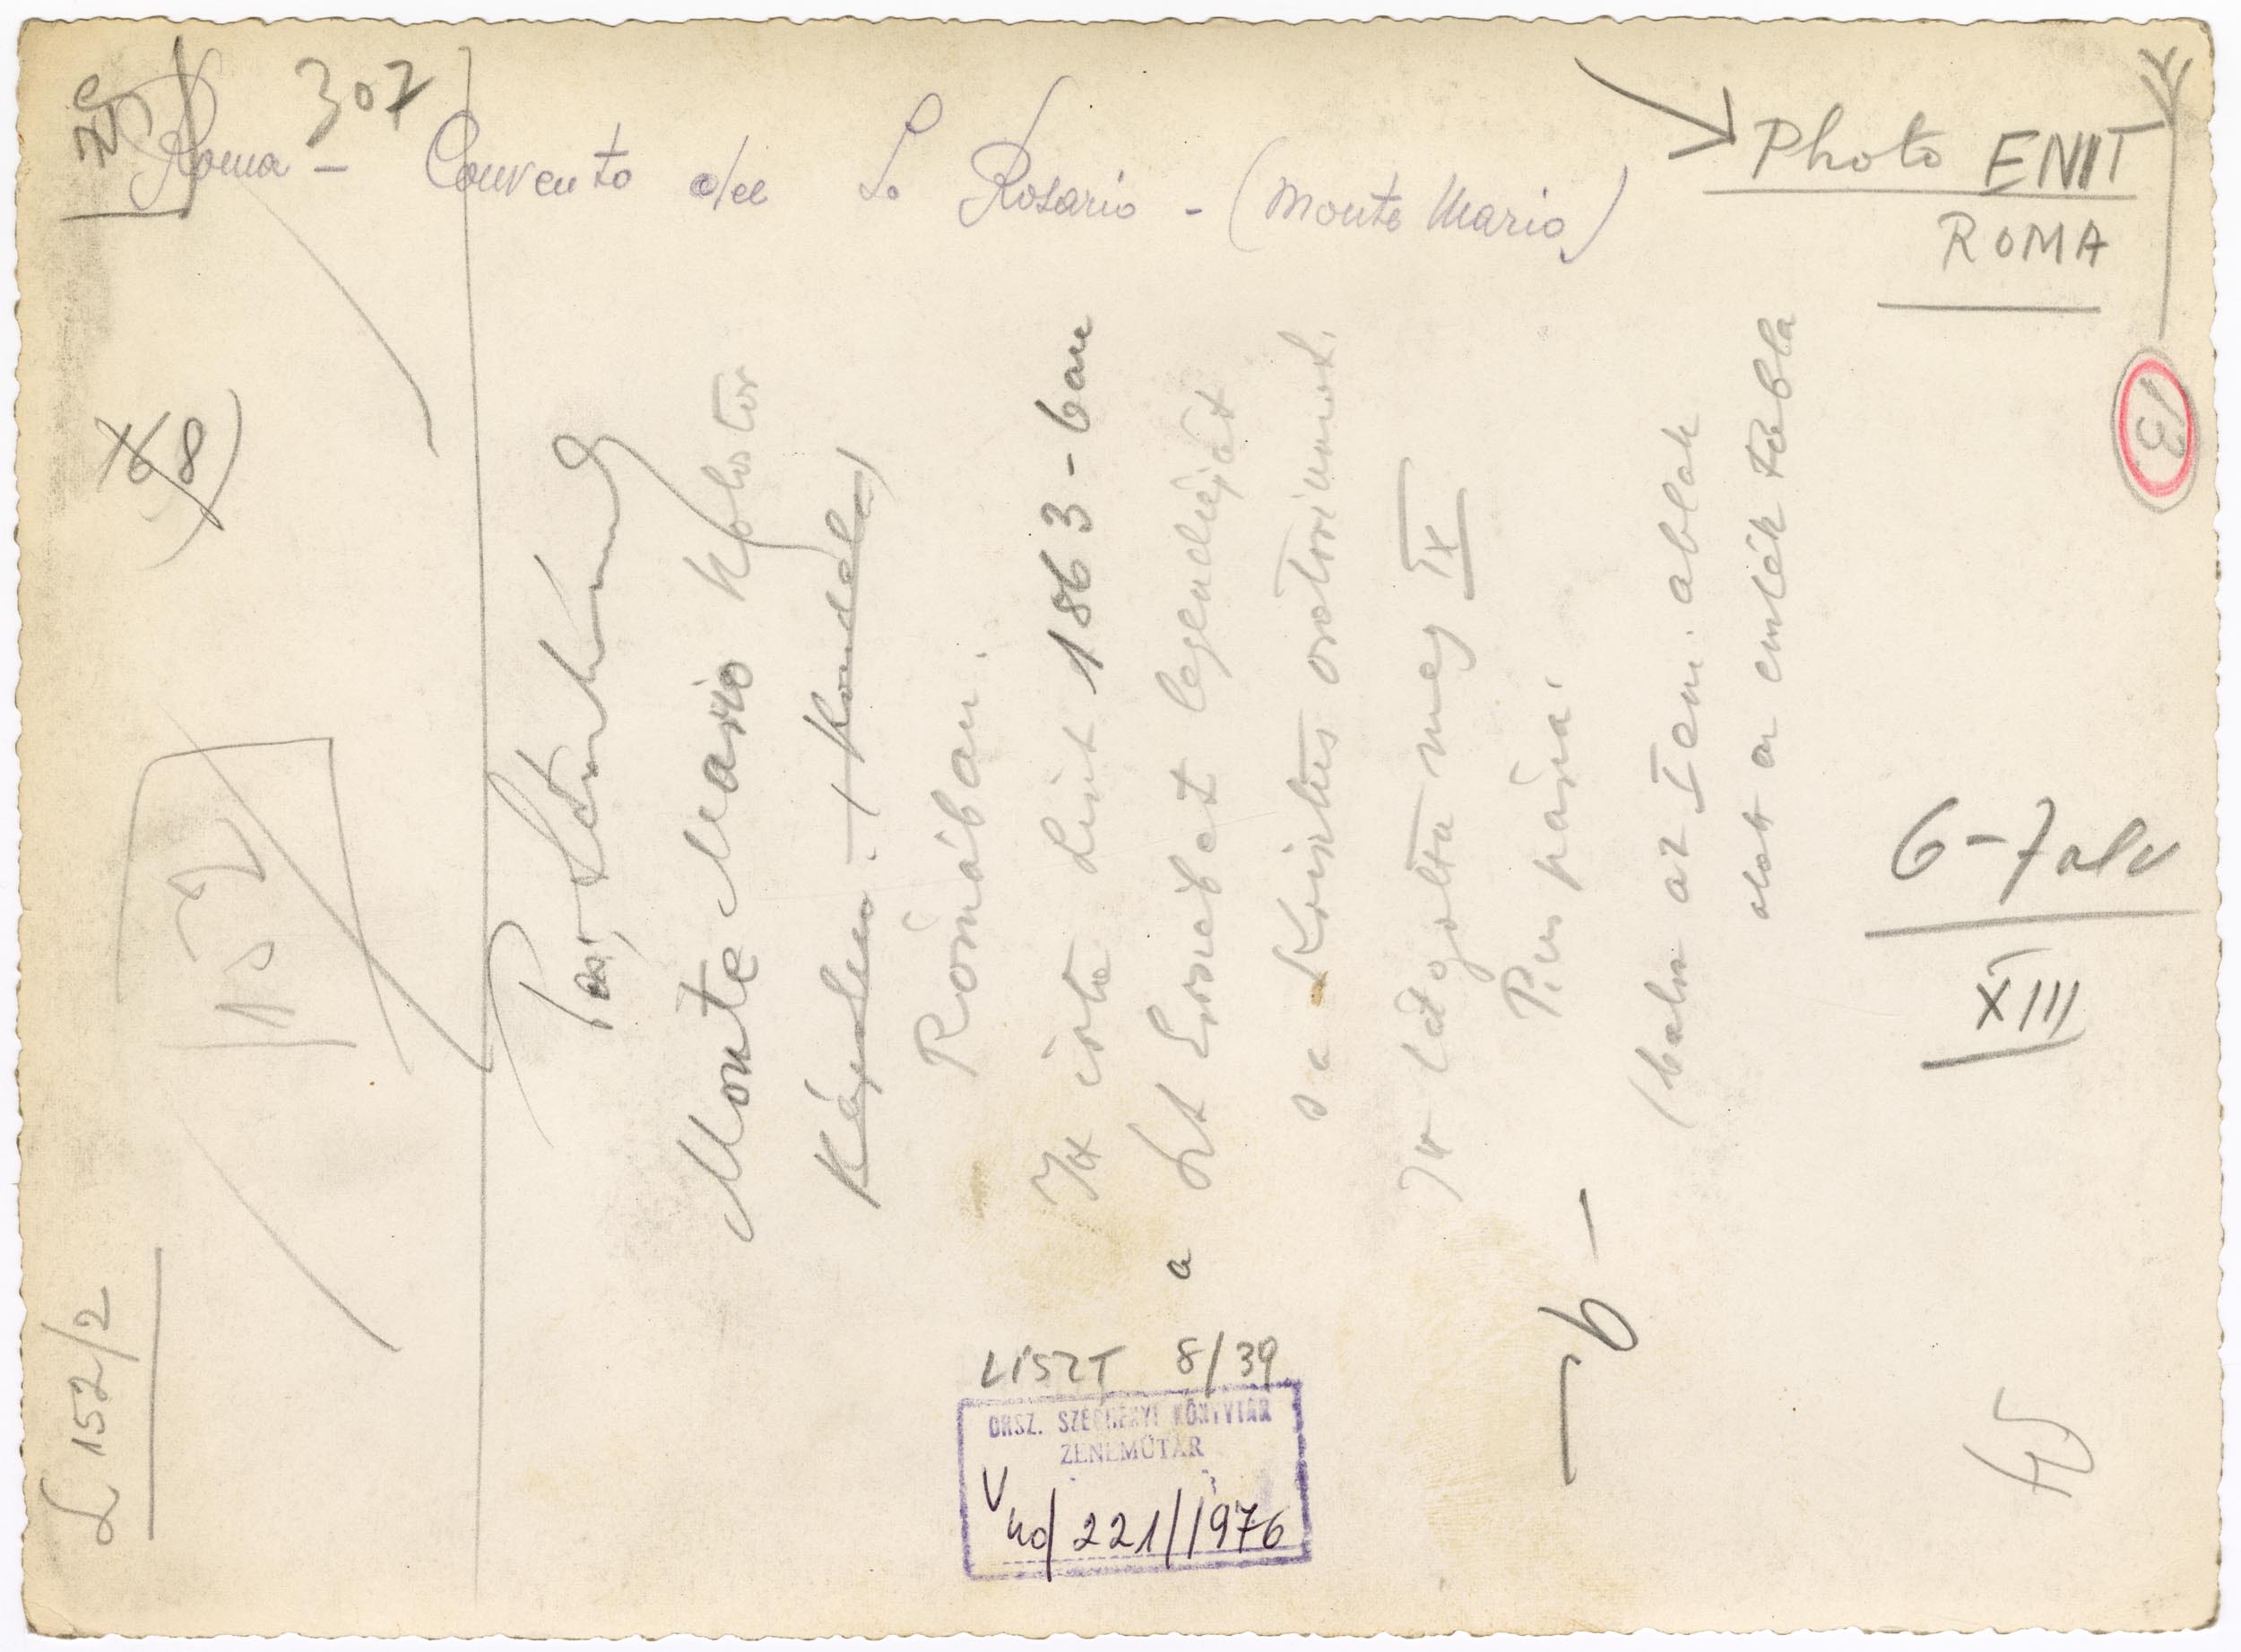 307
Roma - Convento del S. Rosario - (Monte Mario)
Photo ENIT
ROMA
8)
Monte Mario kolostor
Rómában.
Itt írta Liszt 1863-ban
a Szt Erzsébet legendáját
s a Krisztus oratoriumot.
Itt látogatta meg IX
Pius pápa.
(balra az I em. ablak
alatt az emlék tábla
6-7 alv
XIII
152
L 152/2
-b-
LISZT 8/39
ORSZ. SZÉCHÉNYI KÖNYVTÁR
ZENEMŰTÁR
221/1976